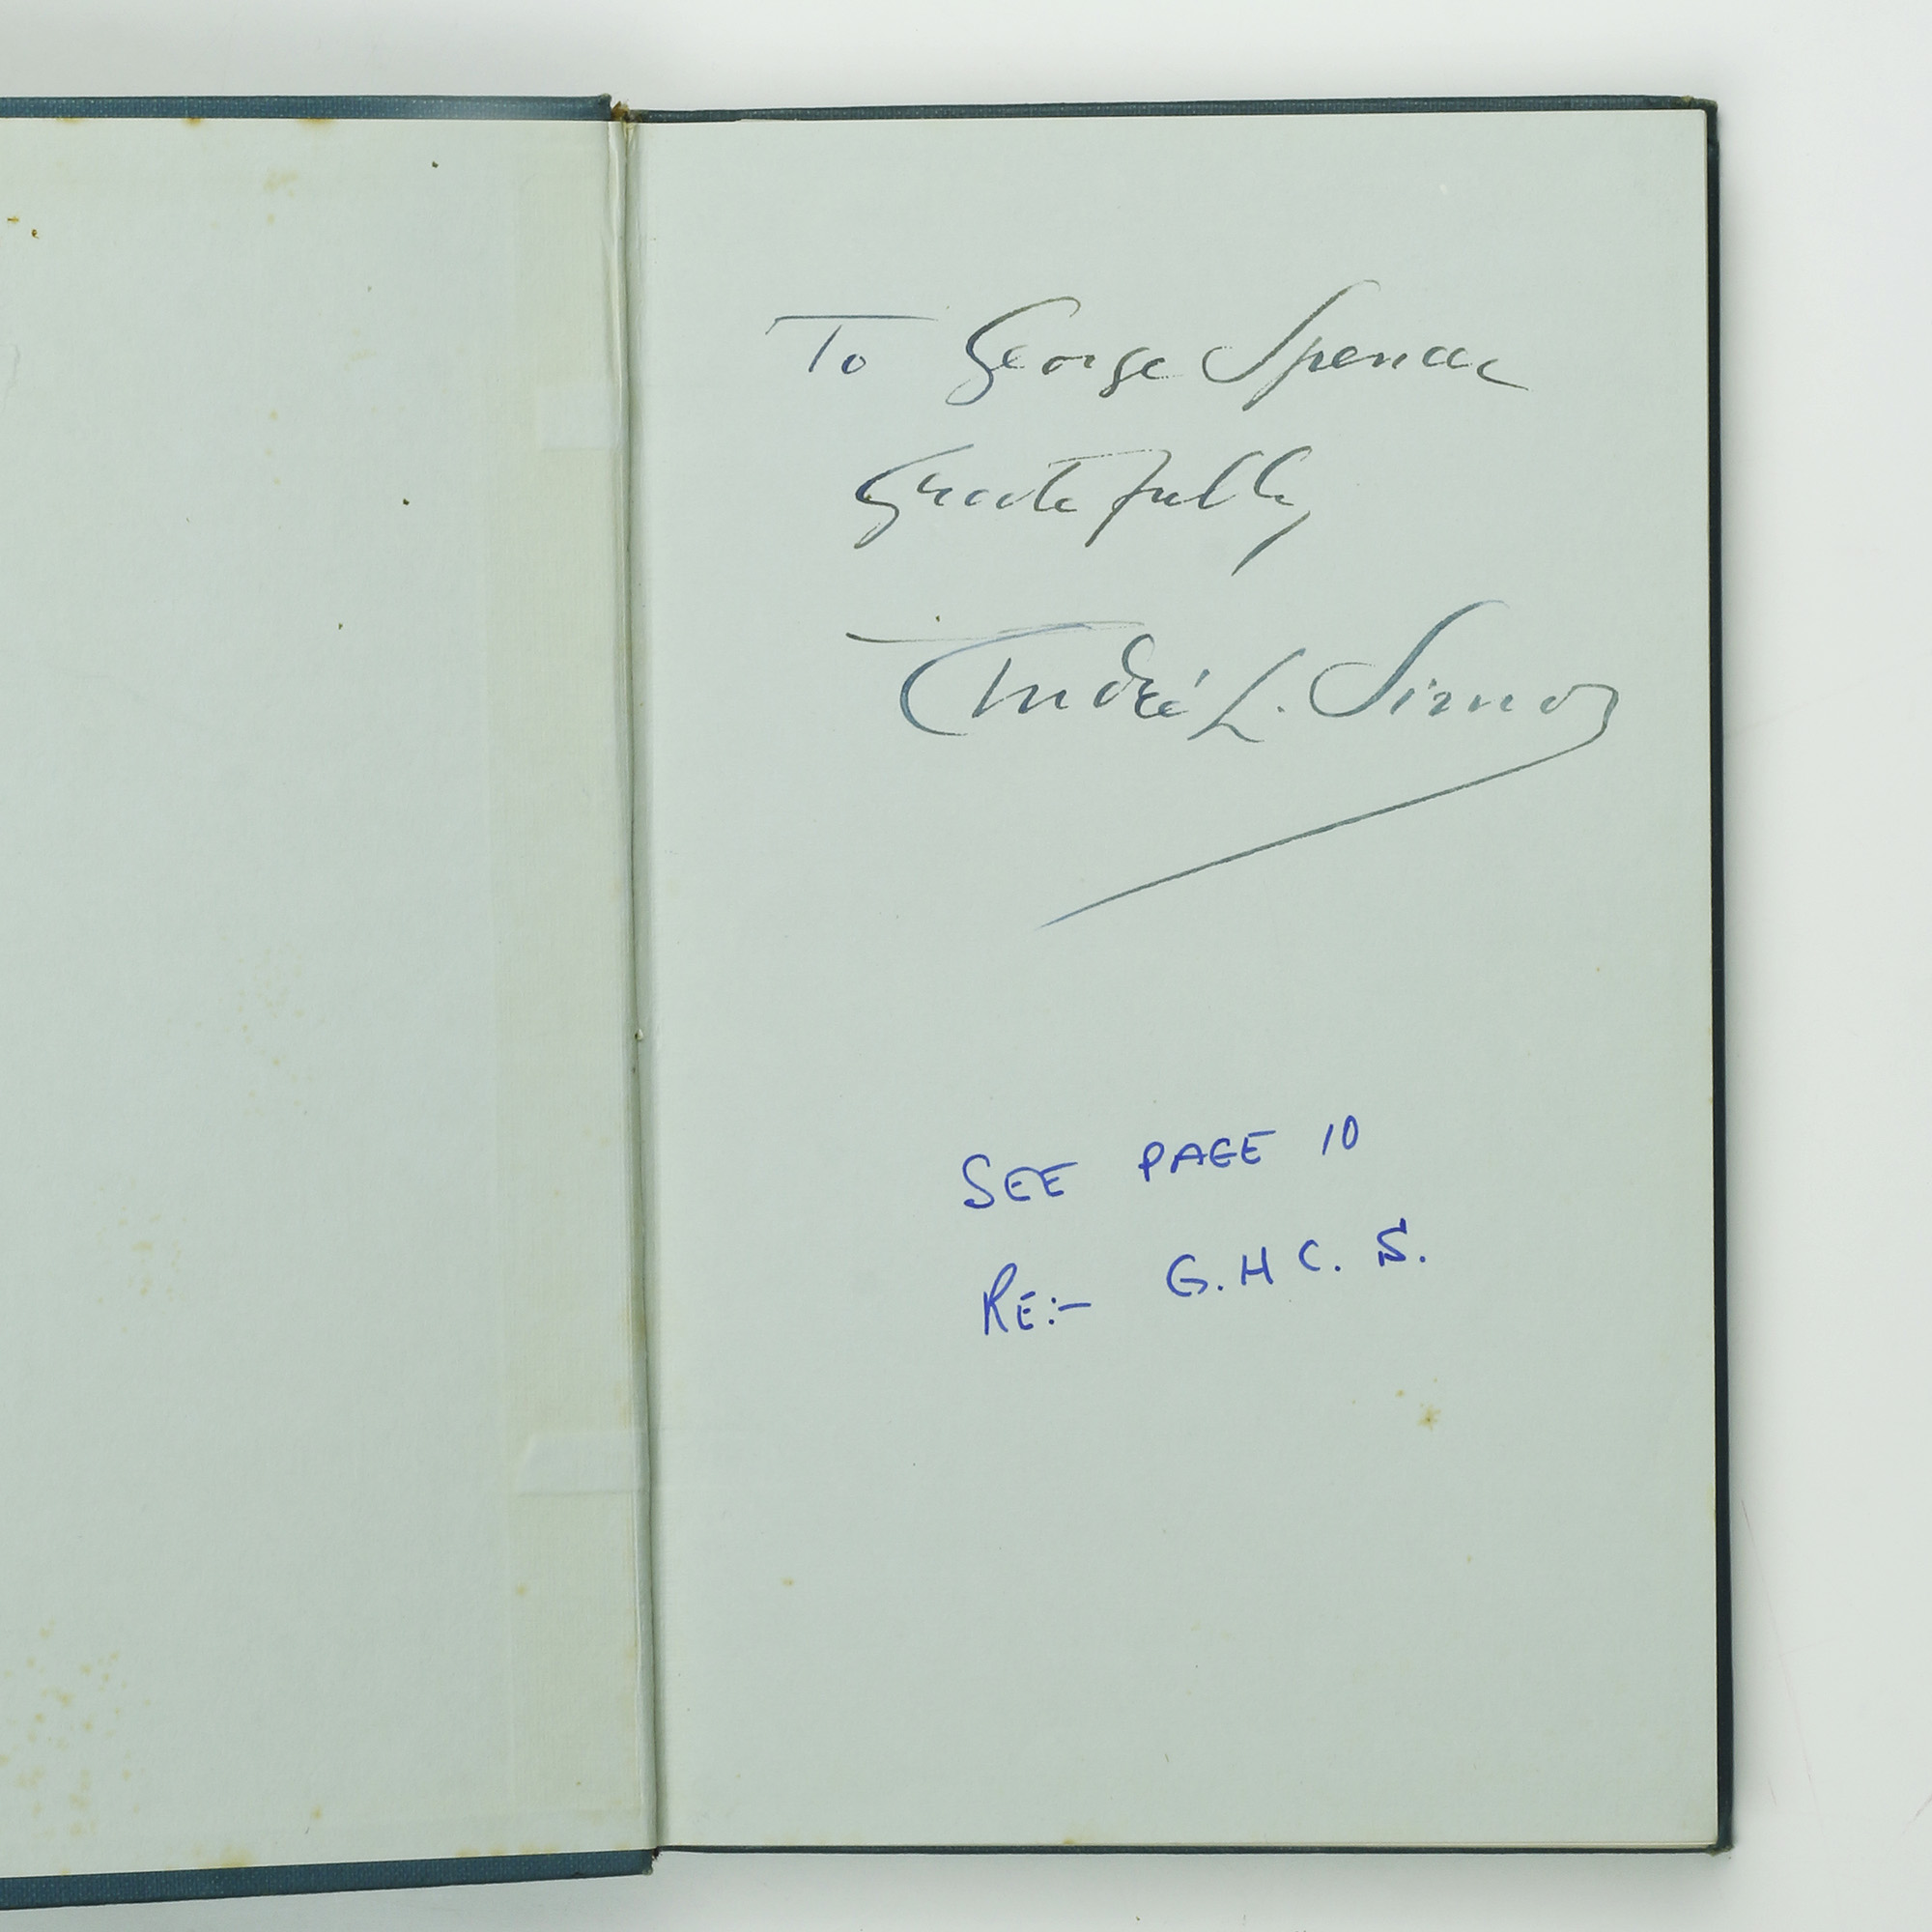 To George Spencer
Gratefully
André L. Simon
SEE PAGE 10
RE:- G.H C. S.